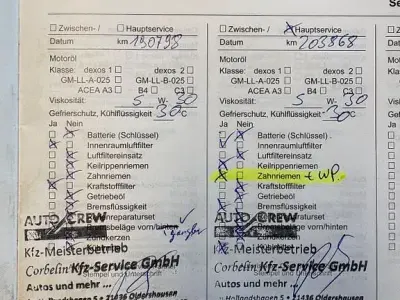 Se
Zwischen- / Hauptservice
Datum km 190798
Motoröl
Klasse: dexos 1 dexos 2
GM-LL-A-025 GM-LL-B-025
ACEA A3 B4 C3
Viskosität: 5 W- 30
Gefrierschutz, Kühlflüssigkeit 30°C
Ja Nein
Batterie (Schlüssel)
Innenraumluftfilter
Luftfiltereinsatz
Keilrippenriemen
Zahnriemen
Kraftstofffilter
Getriebeöl
Bremsflüssigkeit
Reparaturset
Bremsbeläge vorn/hinten
Zündkerzen
AUTO CREW
Kfz-Meisterbetrieb
Corbelin Kfz-Service GmbH
Stempel und Unterschrift
Autos und mehr ...
• 21436 Oldershausen
Zwischen- / Hauptservice
Datum km 203868
Motoröl
Klasse: dexos 1 dexos 2
GM-LL-A-025 GM-LL-B-025
ACEA A3 B4 C3
Viskosität: 5 W- 30
Gefrierschutz, Kühlflüssigkeit 30°C
Ja Nein
Batterie (Schlüssel)
Innenraumluftfilter
Luftfiltereinsatz
Keilrippenriemen
Zahnriemen + WP.
Kraftstofffilter
Getriebeöl
Bremsflüssigkeit
Bremsbeläge vorn/hinten
Zündkerzen
AUTO CREW
Kfz-Meisterbetrieb
Corbelin Kfz-Service GmbH
Stempel und Unterschrift
Autos und mehr ...
• 21436 Oldershausen
Datum
Motoröl
Klasse:
Viskosität:
Gefrierschutz
Ja Nein